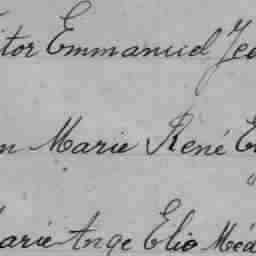 itor Emmanuel Jea
n Marie René E
Marie Ange Elie Méd